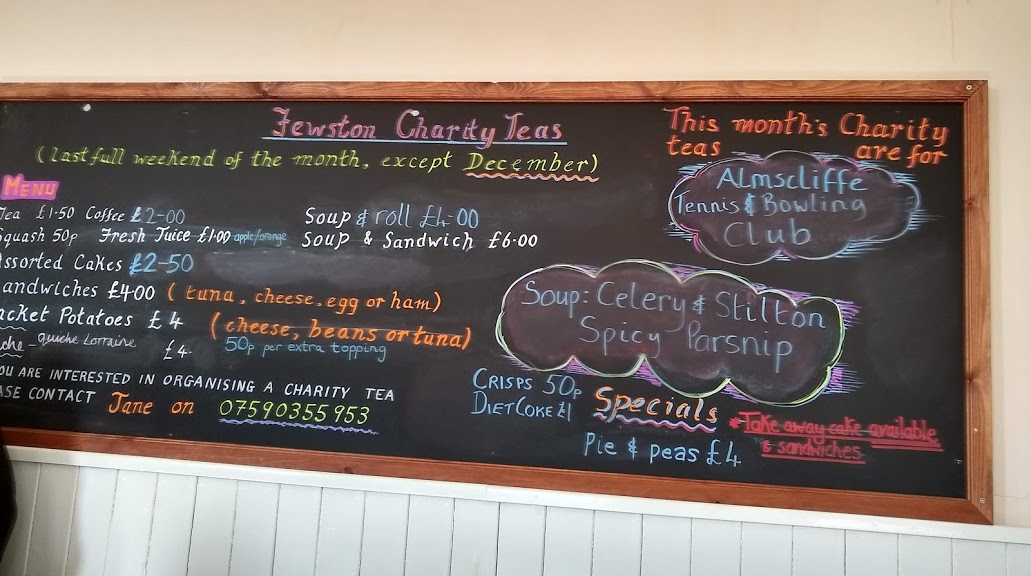 Fewston Charity Teas
(last full weekend of the month, except December)
MENU
Tea £1.50 Coffee £2-00
Squash 50p Fresh Juice £1.00 apple/orange
Assorted Cakes £2-50
andwiches £4.00 (tuna, cheese, egg or ham)
acket Potatoes £4 (cheese, beans or tuna)
50p per extra topping
che - quiche Lorraine £4.
OU ARE INTERESTED IN ORGANISING A CHARITY TEA
ASE CONTACT Jane on 07590355953
Soup & roll £4-00
Soup & Sandwich £6.00
This month's Charity
teas are for
Almscliffe
Tennis & Bowling
Club
Soup: Celery & Stilton
Spicy Parsnip
CRISPS 50p
DIET COKE £1
Specials
Pie & peas £4
*Take away cake available
& sandwiches